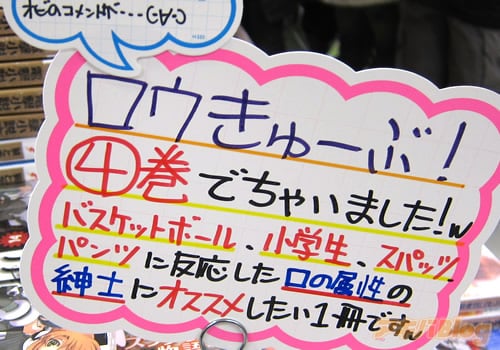 オビのコメントが・・・
ロウきゅーぶ!
④巻でちゃいました!w
バスケットボール、小学生、スパッツ
パンツに反応したロの属性の
紳士にオススメしたい1冊です